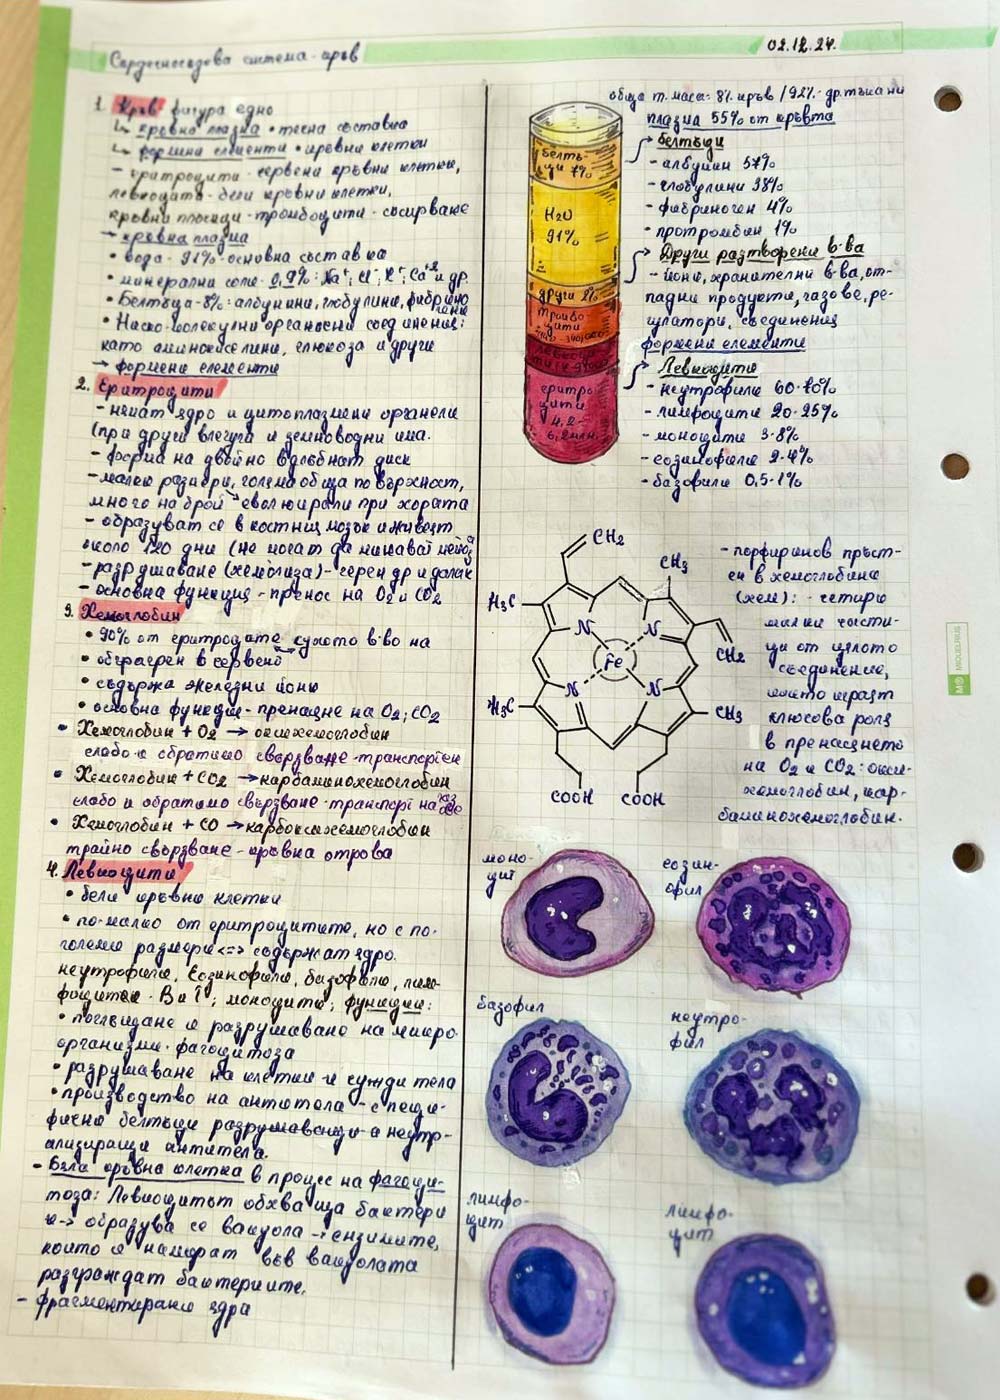 Сърдечносъдова система - кръв
02.12.24.
1. Кръв фигура едно
↳ кръвна плазма • течна съставка
↳ формени елементи • кръвни клетки
- еритроцити - червени кръвни клетки,
левкоцити - бели кръвни клетки,
кръвни плочици - тромбоцити - съсирване
→ кръвна плазма
• вода - 91% - основна съставка
• минерални соли - 0,9%: Na⁺, Cl⁻, K⁺, Ca⁺² и др.
• Белтъца - 8%: албумини, глобулини, фибрино
гени
• Ниско-молекулни органични съединения:
като аминокиселини, глюкоза и други
→ формени елементи
2. Еритроцити
- нямат ядро и цитоплазмени органели
(при други влечуги и земноводни има.
- форма на двойно вдлъбнат диск
- малки размери, голяма обща повърхност,
много на брой → еволюирали при хората
- образуват се в костния мозък и живеят
около 120 дни (не могат да минават
- разрушаване (хемолиза) - черен др и далак
- основна функция - пренос на O₂ и CO₂
3. Хемоглобин
• 90% от еритроците сухото в-во на
• обграден в червено
• съдържа железни йони
• основна функция - пренасяне на O₂; CO₂
• Хемоглобин + O₂ → оксихемоглобин
слабо и обратимо свързване - транспортен
• Хемоглобин + CO₂ → карбаминохемоглобин
слабо и обратимо свързване - транспорт на
• Хемоглобин + CO → карбоксихемоглобин
трайно свързване - кръвна отрова
4. Левкоцити
• бели кръвни клетки
• по-малко от еритроцитите, но с по-
големи размери <=> съдържат ядро.
неутрофили, Еозинофили, базофили, лим-
фоцити - B и T; моноцити; функции:
• поглъщане и разрушаване на микро-
организми - фагоцитоза
• разрушаване на клетки и чужди тела
• производство на антитела - специ-
фични белтъци разрушаващи и неутр-
ализиращи антитела.
- Бяла кръвна клетка в процес на фагоци-
тоза: Левкоцитът обхваща бактери
и → образува се вакуола → ензимите,
които се намират във вакуолата
разграждат бактериите.
- фрагментирани ядра
обща т. маса: 8% кръв / 92% - др. тъкани
плазма 55% от кръвта
белтъци
- албумин 57%
- глобулини 38%
- фибриноген 4%
- протромбин 1%
Други разтворени в-ва
- йони, хранителни в-ва, от-
падни продукти, газове, ре-
гулатори, съединения
формени елементи
Левкоцити
- неутрофили 60-70%
- лимфоцити 20-25%
- моноцити 3-8%
- еозинофили 2-4%
- базофили 0,5-1%
белтъ-
ци 7%
H₂O
91%
други 2%
тромбо-
цити
левкоци-
ти
еритро
цити
4,2-
6,2 млн.
CH₂
CH₃
H₃C
N
N
Fe
CH₂
N
N
H₃C
CH₃
COOH
COOH
- порфиринов пръст-
ен в хемоглобина
(хем): - четири
малки части-
ци от цялото
съединение,
които играят
ключова роля
в пренасянето
на O₂ и CO₂: окси-
хемоглобин, кар-
баминохемоглобин.
моно-
цит
еозин-
офил
базофил
неутро-
фил
лимфо-
цит
лимфо-
цит
MIQUELRIUS